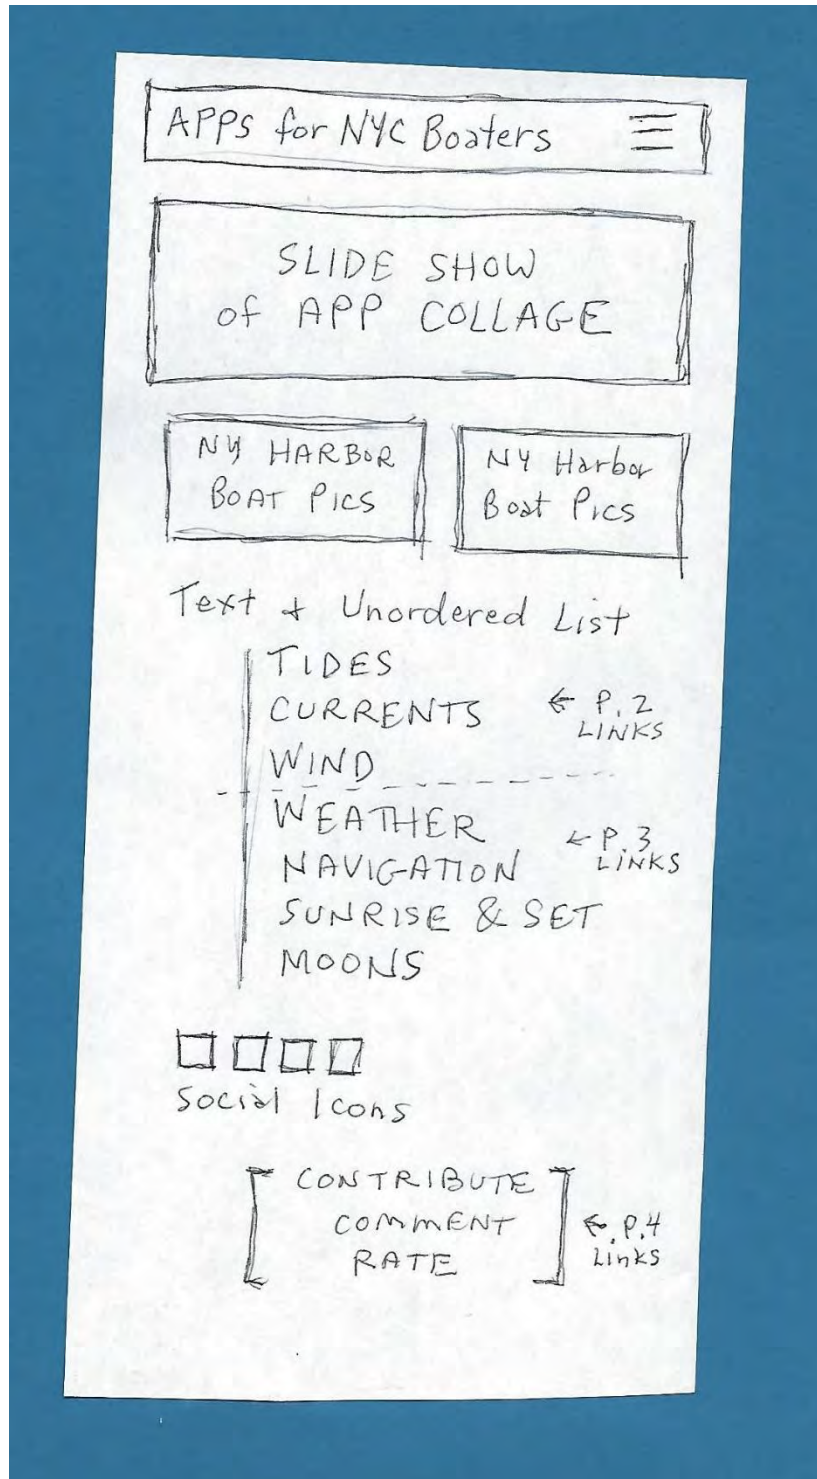 APPS for NYC Boaters
SLIDE SHOW
of APP COLLAGE
NY HARBOR
BOAT PICS
NY Harbor
Boat Pics
Text + Unordered List
TIDES
CURRENTS ← P.2
LINKS
WIND
WEATHER
NAVIGATION ← P.3
LINKS
SUNRISE & SET
MOONS
Social Icons
CONTRIBUTE
COMMENT ← P.4
RATE Links